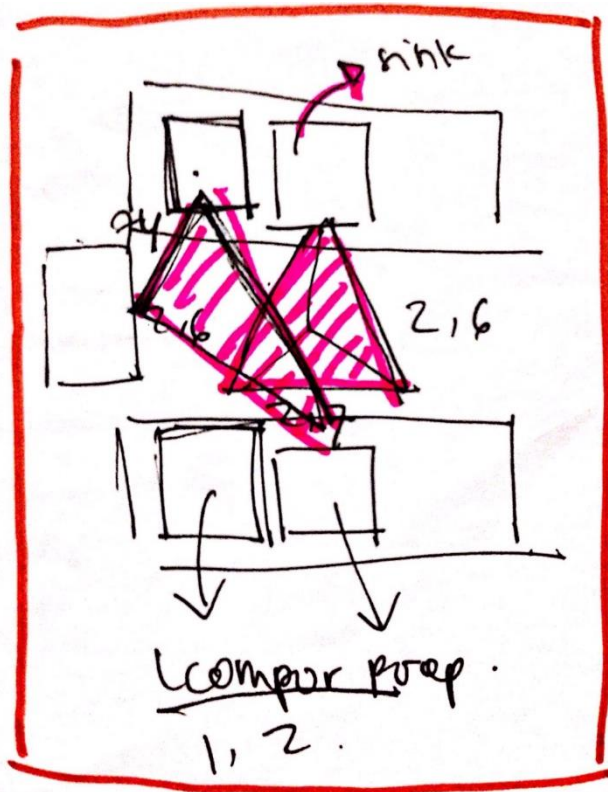 sink
2,6
2,6
kompor prap.
1, 2.